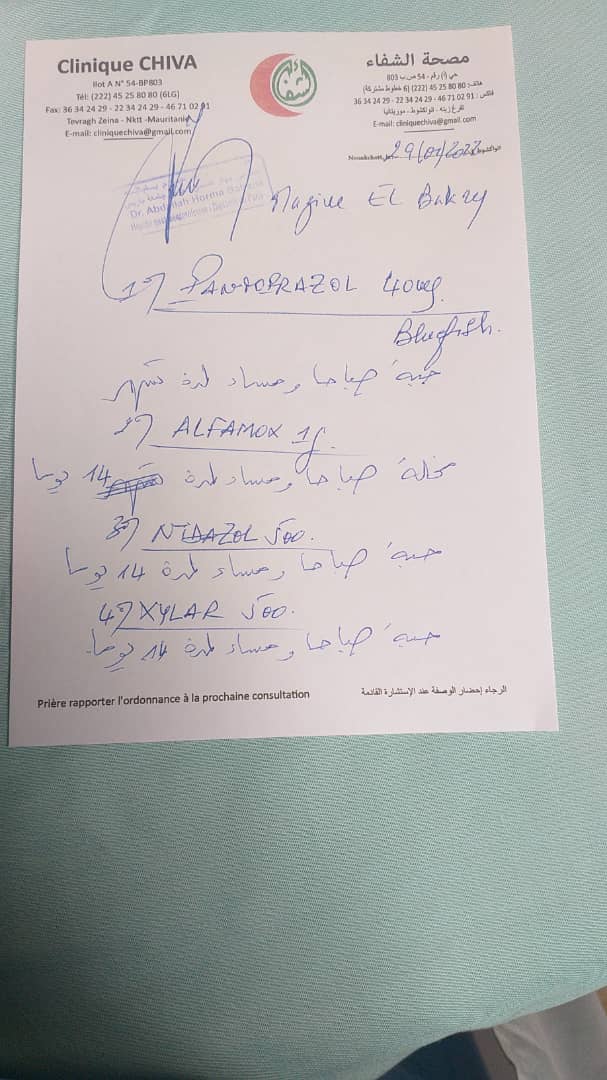 Clinique CHIVA
Ilot A N° 54-BP803
Tél: (222) 45 25 80 80 (6LG)
Fax: 36 34 24 29 - 22 34 24 29 - 46 71 02 91
Tevragh Zeina - Nktt -Mauritanie
E-mail: cliniquechiva@gmail.com
مصحة الشفاء
حي (أ) رقم - 54 ص ب 803
هاتف: 80 80 25 45 (222) (6 خطوط مشتركة)
فاكس : 91 02 71 46 - 29 24 34 22 - 29 24 34 36
تفرغ زينه - انواكشوط - موريتانيا
E-mail: cliniquechiva@gmail.com
Nouakchott, le 29/01/2022 انواكشوط
Dr. Abdallah Horma
El Bakry
1°/ PANTOPRAZOL 40mg.
Bluefish.
حبة صباحا ومساء لمدة شهر
2°/ ALFAMOX 1g.
صباحا ومساء لمدة 14 يوما
3°/ NIDAZOL 500.
حبة صباحا ومساء لمدة 14 يوما
4°/ XYLAR 500.
حبة صباحا ومساء لمدة 14 يوما.
Prière rapporter l'ordonnance à la prochaine consultation
الرجاء إحضار الوصفة عند الإستشارة القادمة